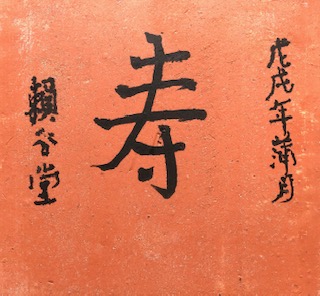 戊戌年蒲月
寿
賴谷堂